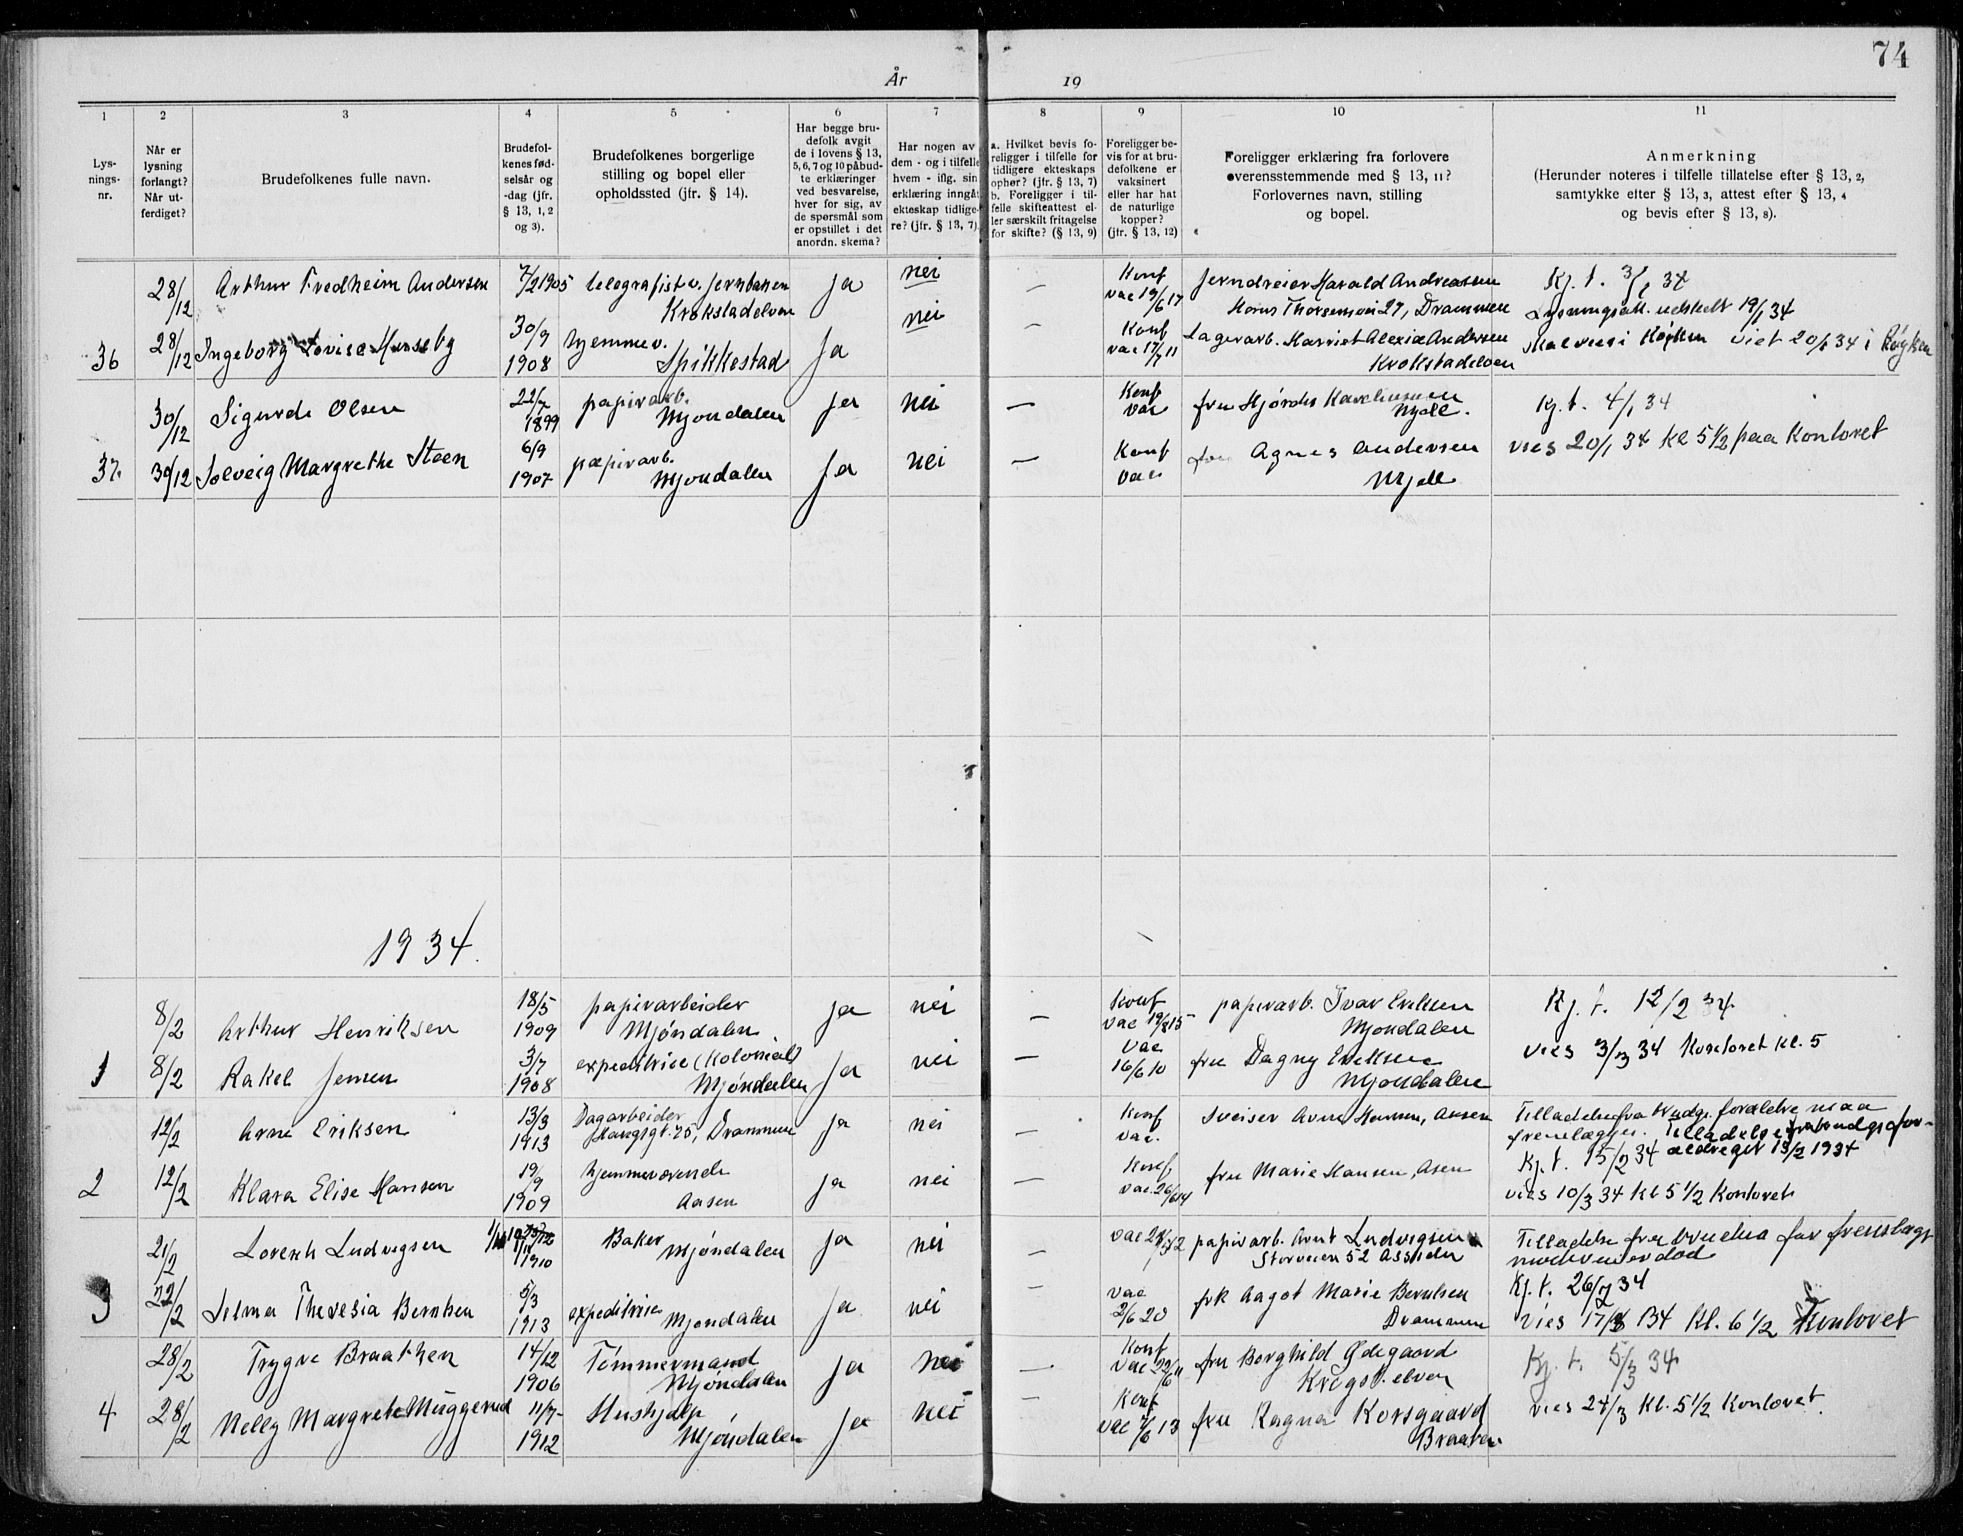 74
År 19
1 2 3 4 5 6 7 8 9 10 11
Lys-
nings-
nr.
Når er
lysning
forlangt?
Når ut-
ferdiget?
Brudefolkenes fulle navn.
Brudefol-
kenes fød-
selsår og
-dag (jfr.
§ 13, 1, 2
og 3).
Brudefolkenes borgerlige
stilling og bopel eller
opholdssted (jfr. § 14).
Har begge bru-
defolk avgit
de i lovens § 13,
5, 6, 7 og 10 påbud-
te erklæringer
ved besvarelse,
hver for sig, av
de spørsmål som
er opstillet i det
anordn. skema?
Har nogen av
dem - og i tilfelle
hvem - iflg. sin
erklæring inngåt
ekteskap tidlige-
re? (jfr. § 13, 7)
a. Hvilket bevis fo-
religger i tilfelle for
tidligere ekteskaps
ophør? (jfr. § 13, 7)
b. Foreligger i til-
felle skifteattest el-
ler særskilt fritagelse
for skifte? (§ 13, 9)
Foreligger be-
vis for at bru-
defolkene er
vaksinert
eller har hat
de naturlige
kopper?
(jfr. § 13, 12)
Foreligger erklæring fra forlovere
overensstemmende med § 13, 11?
Forlovernes navn, stilling
og bopel.
Anmerkning
(Herunder noteres i tilfelle tillatelse efter § 13, 2,
samtykke efter § 13, 3, attest efter § 13, 4
og bevis efter § 13, 8).
28/12 Arthur Fredheim Andersen 7/2 1905 telegrafist v. jernbanen Krokstadelven ja nei — Konf vac 19/6 17 jerndreier Harald Andreassen Hans Thorsensvei 27, Drammen Kj. t. 3/1 34
Lysningsatt. utstedt 19/1 34
36 28/12 Ingeborg Lovise Hunseby 30/9 1908 hjemmev. Spikkestad ja nei — Konf vac 17/7 11 Lagerarb. Harriet Alexia Andersen Krokstadelven Skal vies i Røyken viet 20/1 34 i Røyken
30/12 Sigurd Olsen 22/7 1899 papirarb. Mjøndalen ja nei — Konf vac fru Hjørdis Karlhussen Mjdl. Kj. t. 4/1 34
37. 30/12 Solveig Margrethe Steen 6/9 1907 papirarb. Mjøndalen ja nei — Konf vac Agnes Andersen Mjdl vies 20/1 34 kl 5 1/2 paa Kontoret
1934.
8/2 Arthur Henriksen 18/5 1909 papirarbeider Mjøndalen ja nei — Konf vac 19/8 15 papirarb. Ivar Eriksen Mjøndalen Kj. t. 12/2 34
1 8/2 Rakel Jensen 3/7 1908 expeditrice (Kolonial) Mjøndalen ja nei — vac 16/6 10 fru Dagny Eriksen Mjøndalen vies 3/3 34 Kontoret kl. 5
12/2 Arne Eriksen 13/3 1913 Dagarbeider Haugsgt. 75, Drammen ja nei — Konf vac. Sveiser Arne Hansen, Aasen Tilladelse fra brudgs. forældre maa
fremlægges. Tilladelse fra brudgs for-
ældre git 13/2 1934
2 12/2 Klara Elise Hansen 19/9 1909 hjemmeværende Aasen ja nei — Konf vac. 26/6 14 fru Marie Hansen, Aasen Kj. t. 15/2 34
vies 10/3 34 kl 5 1/2 Kontoret
21/2 Lorentz Ludvigsen 1910 Baker Mjøndalen ja nei — papirarb. Arnt Ludvigsen Storveien 52 Assiden Tilladelse fra brudens far fremlagt
moderen er død
3 22/2 Selma Theresia Berntsen 5/3 1913 expeditrise Mjøndalen ja nei — vac 2/6 20 frk Aagot Marie Berntsen Drammen Kj. t. 26/2 34
vies 17/3 34 kl. 6 1/2 Kontoret
28/2 Trygve Braathen 14/12 1906 Tømmermand Mjøndalen ja nei — Konf vac 22/6 11 fru Borghild Ødegaard Krogst. elven Kj. t. 5/3 34
4 28/2 Nelly Margrete Muggerud 11/7 1912 Hushjelp Mjøndalen ja nei — Konf vac 7/6 13 fru Ragna Korsgaard Braaten vies 24/3 kl. 5 1/2 Kontoret